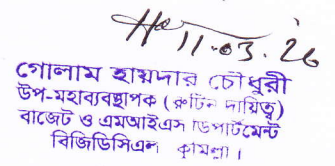 11.03.26
গোলাম হায়দার চৌধুরী
উপ-মহাব্যবস্থাপক (রুটিন দায়িত্ব)
বাজেট ও এমআইএস ডিপার্টমেন্ট
বিজিডিসিএল কুমিল্লা।